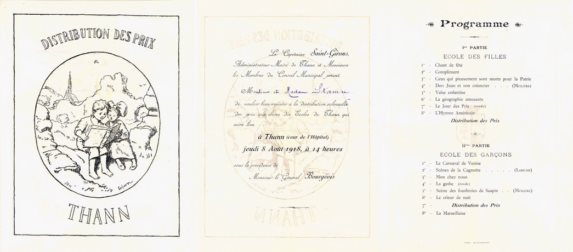 DISTRIBUTION DES PRIX
THANN
Le Capitaine Saint-Girons,
Administrateur-Maire de Thann et Messieurs
les Membres du Conseil Municipal prient
Monsieur et Madame
de vouloir bien assister à la distribution solennelle
des prix aux élèves des Ecoles de Thann qui
aura lieu
à Thann (cour de l'Hôpital)
jeudi 8 Août 1918, à 14 heures
sous la présidence de
Monsieur le Général Bourgeois
Programme
Ire PARTIE
ECOLE DES FILLES
1° - Chant de fête
2° - Compliment
3° - Ceux qui pieusement sont morts pour la Patrie
4° - Don Juan et son créancier . . . (MOLIÈRE)
5° - Valse enfantine
6° - La géographie amusante
7° - Le Jour des Prix
8° - L'Hymne Américain
Distribution des Prix
IIme PARTIE
ECOLE DES GARÇONS
1° - Le Carnaval de Venise
2° - Scènes de la Cagnotte . . . (LABICHE)
3° - Mon chez nous
4° - La gerbe
5° - Scène des fourberies de Scapin . . . (MOLIÈRE)
6° - Le semeur de nuit
7° Distribution des Prix
8° - La Marseillaise